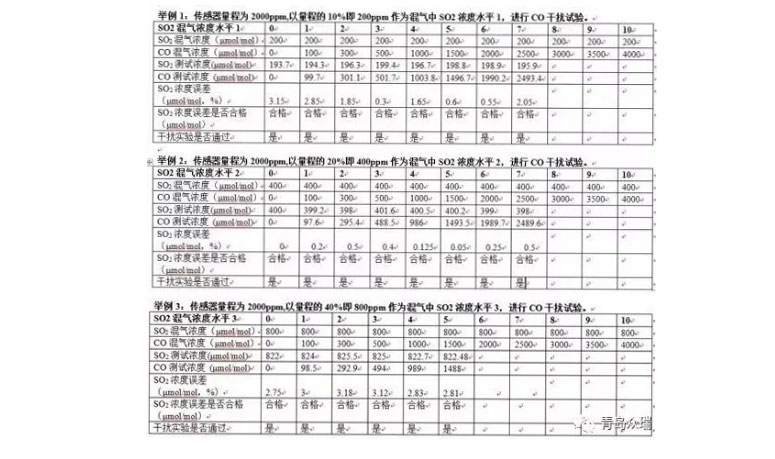 举例 1：传感器量程为 2000ppm,以量程的 10%即 200ppm 作为混气中 SO2 浓度水平 1，进行 CO 干扰试验。
SO2 混气浓度水平 1 0 1 2 3 4 5 6 7 8 9 10
SO2 混气浓度（μmol/mol） 200 200 200 200 200 200 200 200 200 200 200
CO 混气浓度（μmol/mol） 0 100 300 500 1000 1500 2000 2500 3000 3500 4000
SO2 测试浓度（μmol/mol） 193.7 194.3 196.3 199.4 196.7 198.8 198.9 195.9
CO 测试浓度 (μmol/mol) 0 99.7 301.1 501.7 1003.8 1496.7 1990.2 2493.4
SO2 浓度误差
（μmol/mol，%） 3.15 2.85 1.85 0.3 1.65 0.6 0.55 2.05
SO2 浓度误差是否合格 合格 合格 合格 合格 合格 合格 合格 合格
（μmol/mol）
干扰实验是否通过 是 是 是 是 是 是 是 是
举例 2：传感器量程为 2000ppm,以量程的 20%即 400ppm 作为混气中 SO2 浓度水平 2，进行 CO 干扰试验。
SO2 混气浓度水平 2 0 1 2 3 4 5 6 7 8 9 10
SO2 混气浓度（μmol/mol） 400 400 400 400 400 400 400 400 400 400 400
CO 混气浓度（μmol/mol） 0 100 300 500 1000 1500 2000 2500 3000 3500 4000
SO2 测试浓度(μmol/mol) 400 399.2 398 401.6 400.5 400.2 399 398
CO 测试浓度 (μmol/mol) 0 97.6 295.4 488.5 986 1493.5 1989.7 2489.6
SO2 浓度误差
（μmol/mol，%） 0 0.2 0.5 0.4 0.125 0.05 0.25 0.5
SO2 浓度误差是否合格 合格 合格 合格 合格 合格 合格 合格 合格
（μmol/mol）
干扰实验是否通过 是 是 是 是 是 是 是 是
举例 3：传感器量程为 2000ppm,以量程的 40%即 800ppm 作为混气中 SO2 浓度水平 3，进行 CO 干扰试验。
SO2 混气浓度水平 3 0 1 2 3 4 5 6 7 8 9 10
SO2 混气浓度（μmol/mol） 800 800 800 800 800 800 800 800 800 800 800
CO 混气浓度（μmol/mol） 0 100 300 500 1000 1500 2000 2500 3000 3500 4000
SO2 测试浓度(μmol/mol) 822 824 825.5 825 822.7 822.48
CO 测试浓度 (μmol/mol) 0 98.5 292.9 494 989 1488
SO2 浓度误差
（μmol/mol，%） 2.75 3 3.18 3.12 2.83 2.81
SO2 浓度误差是否合格 合格 合格 合格 合格 合格 合格
（μmol/mol）
干扰实验是否通过 是 是 是 是 是 是
青岛众瑞